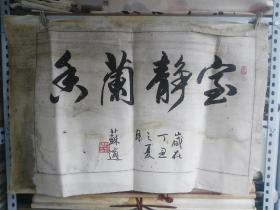 室静蘭香
歲在
丁丑
之夏
蘇適